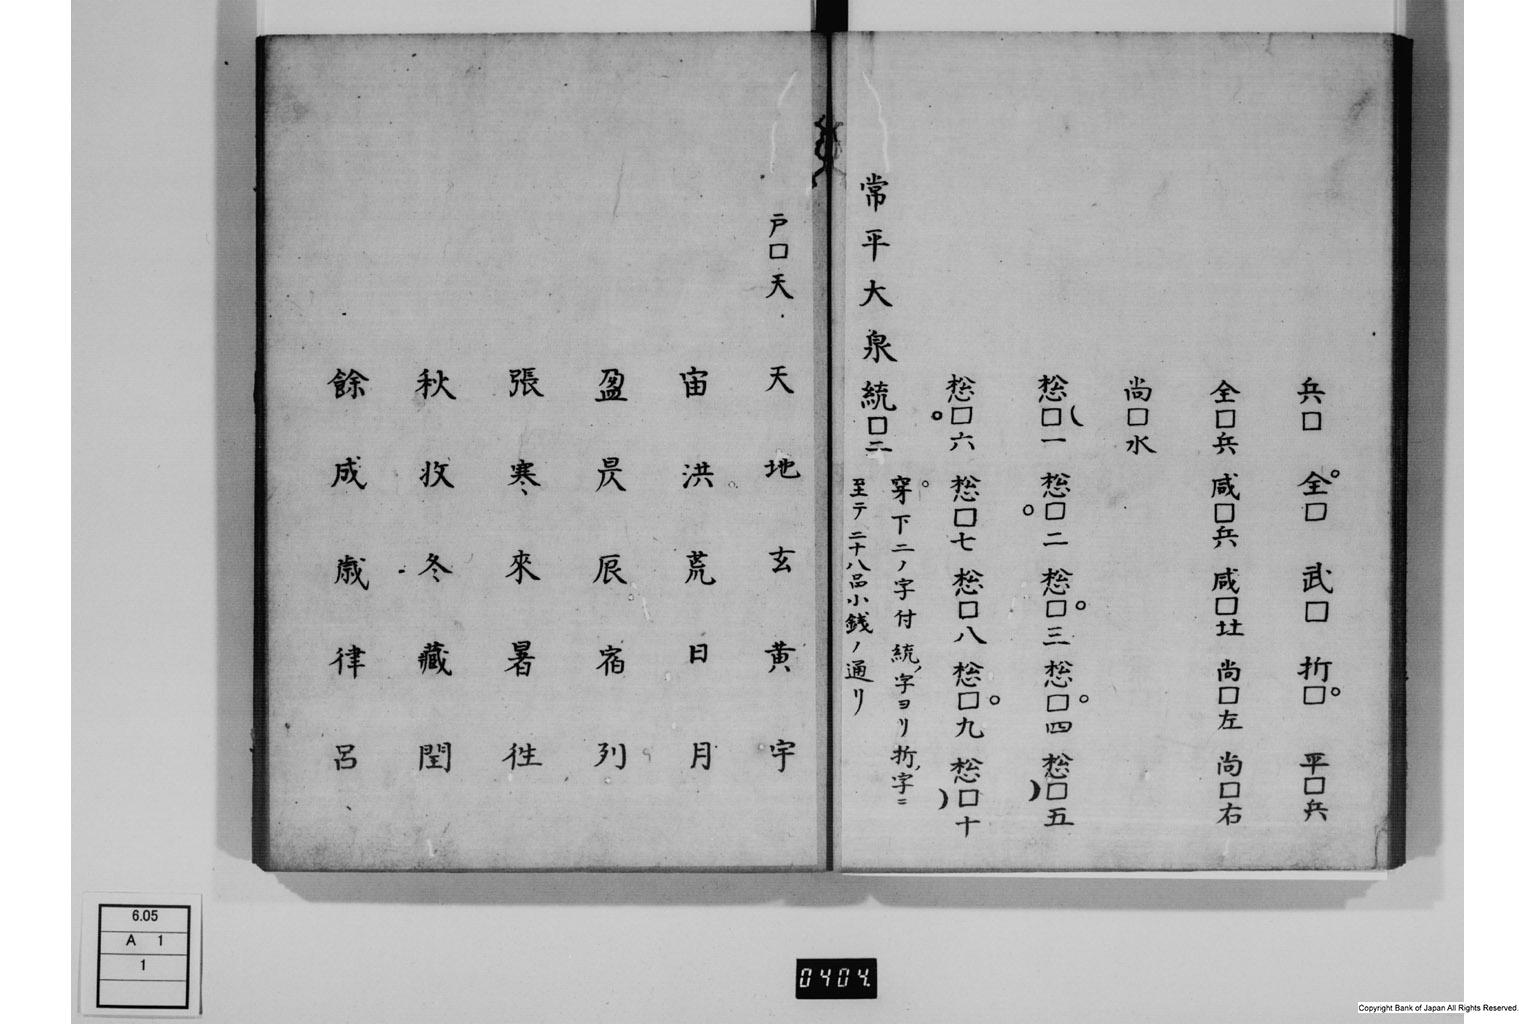 兵口 全口 武口 折口 平口兵
全口兵 咸口兵 咸口圵 尚口左 尚口右
尚口水
惣口一 惣口二 惣口三 惣口四 惣口五
惣口六 惣口七 惣口八 惣口九 惣口十
常平大泉統口二
穿下二ノ字付統ノ字ヨリ折ノ字ニ
至テ二十八品小銭ノ通リ
戸口天 天地玄黄宇
宙洪荒日月
盈昃辰宿列
張寒來暑徃
秋收冬藏閏
餘成歲律呂
6.05
A 1
1
0404.
Copyright Bank of Japan All Rights Reserved.